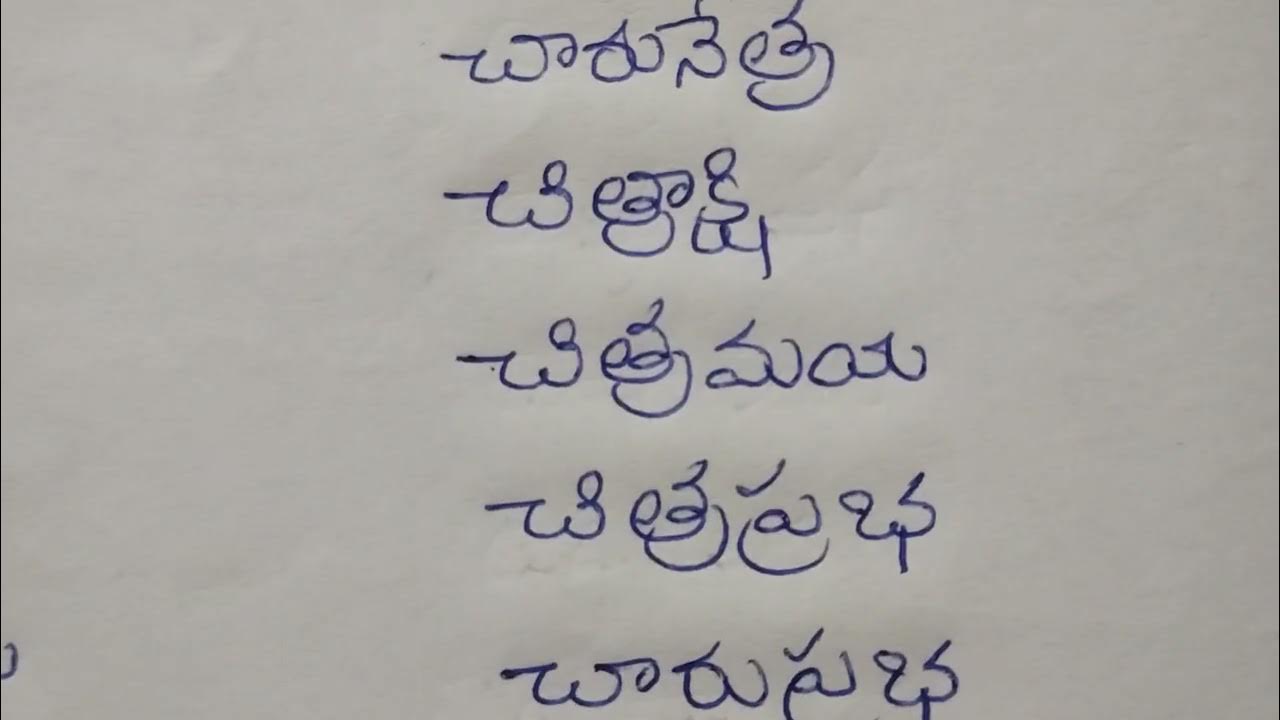 చారునేత్ర
చిత్రాక్షి
చిత్రమయ
చిత్రప్రభ
చారుప్రభ